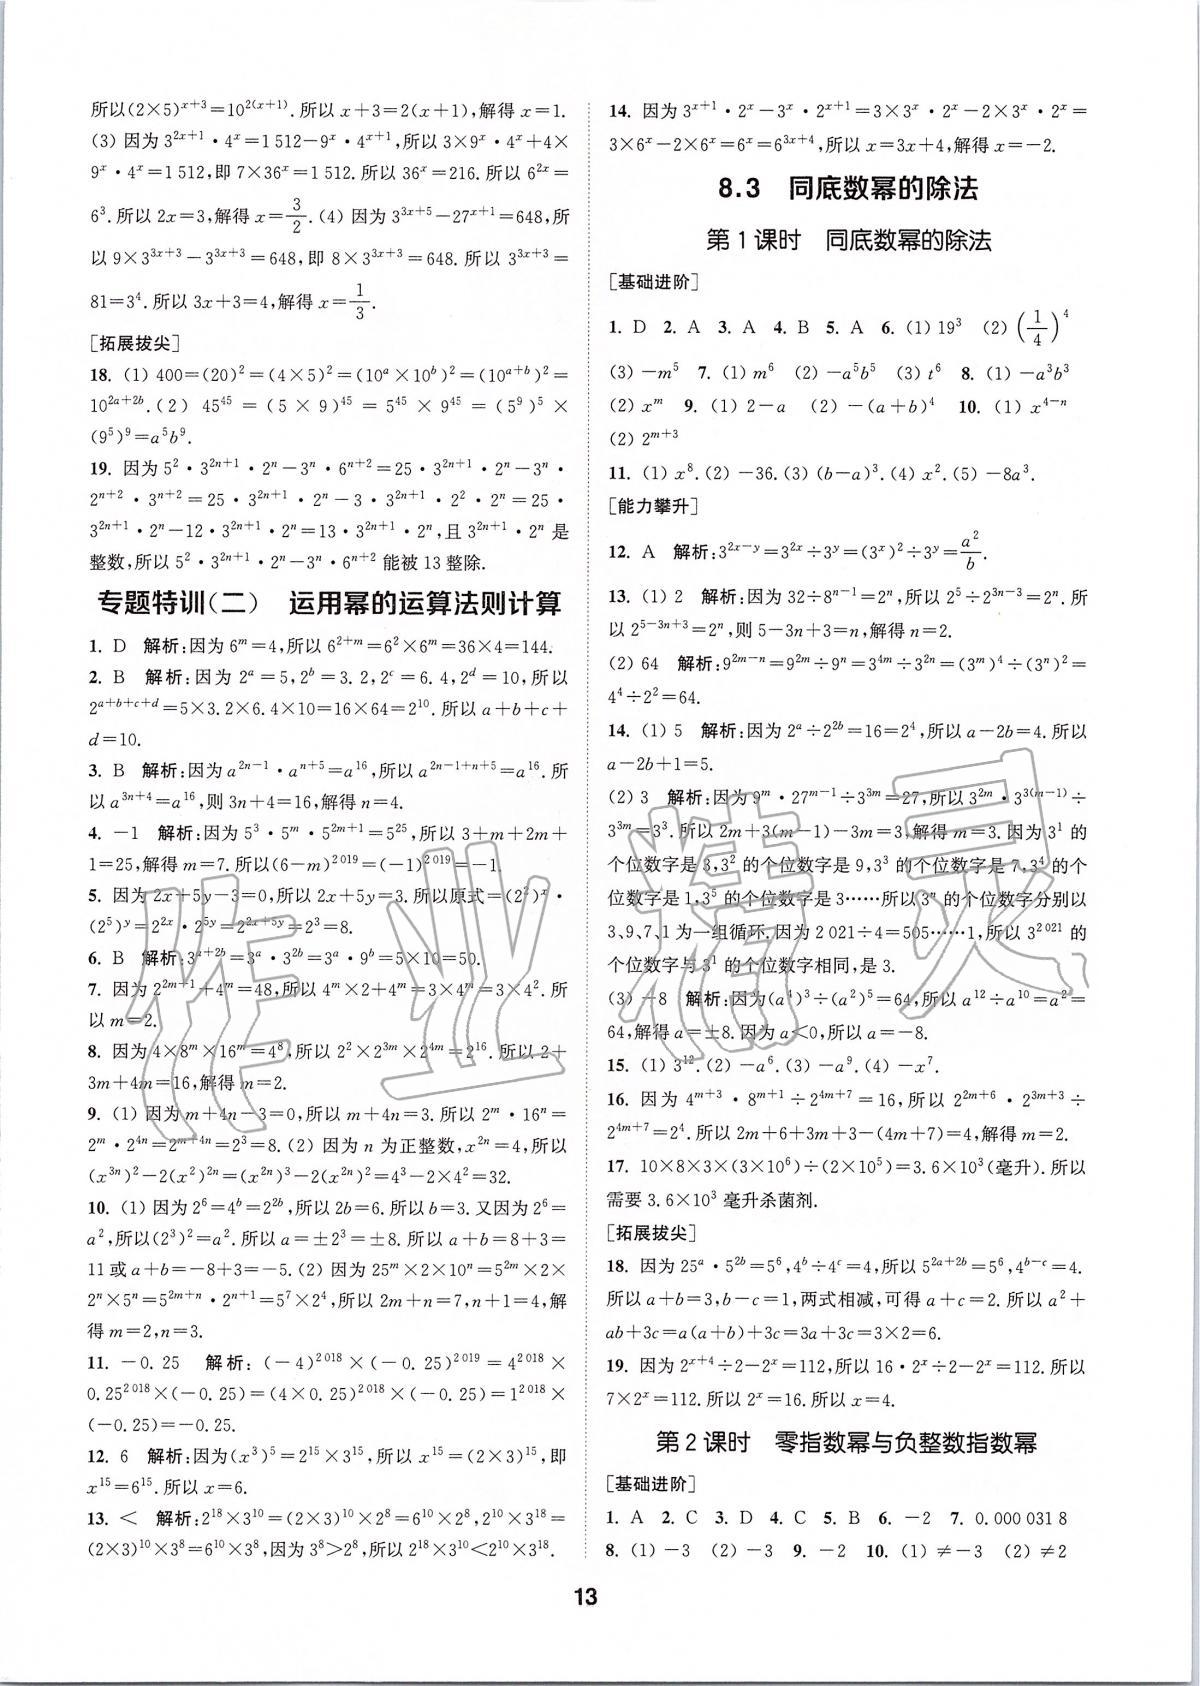 所以(2×5)^{x+3}=10^{2(x+1)}.所以 x+3=2(x+1),解得 x=1.
(3) 因为 3^{2x+1}·4^x=1 512−9^x·4^{x+1},所以 3×9^x·4^x+4×
9^x·4^x=1 512,即 7×36^x=1 512.所以 36^x=216.所以 6^{2x}=
6^3.所以 2x=3,解得 x=3/2.(4) 因为 3^{3x+5}−27^{x+1}=648,所
以 9×3^{3x+3}−3^{3x+3}=648,即 8×3^{3x+3}=648.所以 3^{3x+3}=
81=3^4.所以 3x+3=4,解得 x=1/3.
[拓展拔尖]
18. (1) 400=(20)^2=(4×5)^2=(10^a×10^b)^2=(10^{a+b})^2=
10^{2a+2b}.(2) 45^{45}=(5×9)^{45}=5^{45}×9^{45}=(5^9)^5×
(9^5)^9=a^5b^9.
19. 因为 5^2·3^{2n+1}·2^n−3^n·6^{n+2}=25·3^{2n+1}·2^n−3^n·
2^{n+2}·3^{n+2}=25·3^{2n+1}·2^n−3·3^{2n+1}·2^2·2^n=25·
3^{2n+1}·2^n−12·3^{2n+1}·2^n=13·3^{2n+1}·2^n,且 3^{2n+1}·2^n 是
整数,所以 5^2·3^{2n+1}·2^n−3^n·6^{n+2} 能被 13 整除.
专题特训(二) 运用幂的运算法则计算
1. D 解析:因为 6^m=4,所以 6^{2+m}=6^2×6^m=36×4=144.
2. B 解析:因为 2^a=5,2^b=3.2,2^c=6.4,2^d=10,所以
2^{a+b+c+d}=5×3.2×6.4×10=16×64=2^{10}.所以 a+b+c+
d=10.
3. B 解析:因为 a^{2n−1}·a^{n+5}=a^{16},所以 a^{2n−1+n+5}=a^{16}.所
以 a^{3n+4}=a^{16},则 3n+4=16,解得 n=4.
4. −1 解析:因为 5^3·5^m·5^{2m+1}=5^{25},所以 3+m+2m+
1=25,解得 m=7.所以(6−m)^{2 019}=(−1)^{2 019}=−1.
5. 因为 2x+5y−3=0,所以 2x+5y=3.所以原式=(2^2)^x·
(2^5)^y=2^{2x}·2^{5y}=2^{2x+5y}=2^3=8.
6. B 解析:3^{a+2b}=3^a·3^{2b}=3^a·9^b=5×10=50.
7. 因为 2^{2m+1}+4^m=48,所以 4^m×2+4^m=3×4^m=3×4^2.所
以 m=2.
8. 因为 4×8^m×16^m=4^8,所以 2^2×2^{3m}×2^{4m}=2^{16}.所以 2+
3m+4m=16,解得 m=2.
9. (1) 因为 m+4n−3=0,所以 m+4n=3.所以 2^m·16^n=
2^m·2^{4n}=2^{m+4n}=2^3=8.(2) 因为 n 为正整数,x^{2n}=4,所以
(x^{3n})^2−2(x^2)^{2n}=(x^{2n})^3−2(x^{2n})^2=4^3−2×4^2=32.
10. (1) 因为 2^6=4^b=2^{2b},所以 2b=6.所以 b=3.又因为 2^6=
a^2,所以(2^3)^2=a^2.所以 a=±2^3=±8.所以 a+b=8+3=
11 或 a+b=−8+3=−5.(2) 因为 25^m×2×10^n=5^{2m}×2×
2^n×5^n=5^{2m+n}·2^{n+1}=5^7×2^4,所以 2m+n=7,n+1=4,解
得 m=2,n=3.
11. −0.25 解析:(−4)^{2 018}×(−0.25)^{2 019}=4^{2 018}×
0.25^{2 018}×(−0.25)=(4×0.25)^{2 018}×(−0.25)=1^{2 018}×
(−0.25)=−0.25.
12. 6 解析:因为(x^3)^5=2^{15}×3^{15},所以 x^{15}=(2×3)^{15},即
x^{15}=6^{15}.所以 x=6.
13. < 解析:2^{18}×3^{10}=(2×3)^{10}×2^8=6^{10}×2^8,2^{10}×3^{18}=
(2×3)^{10}×3^8=6^{10}×3^8,因为 3^8>2^8,所以 2^{18}×3^{10}<2^{10}×3^{18}.
14. 因为 3^{x+1}·2^x−3^x·2^{x+1}=3×3^x·2^x−2×3^x·2^x=
3×6^x−2×6^x=6^x=6^{3x+4},所以 x=3x+4,解得 x=−2.
8.3 同底数幂的除法
第 1 课时 同底数幂的除法
[基础进阶]
1. D 2. A 3. A 4. B 5. A 6. (1) 19^3 (2) (1/4)^4
(3) −m^5 7. (1) m^6 (2) −a^5b^5 (3) t^6 8. (1) −a^3b^3
(2) x^m 9. (1) 2−a (2) −(a+b)^4 10. (1) x^{4−n}
(2) 2^{m+3}
11. (1) x^8.(2) −36.(3) (b−a)^3.(4) x^2.(5) −8a^3.
[能力攀升]
12. A 解析:3^{2x−y}=3^{2x}÷3^y=(3^x)^2÷3^y=a^2/b.
13. (1) 2 解析:因为 32÷8^{n−1}=2^n,所以 2^5÷2^{3n−3}=2^n.所
以 2^{5−3n+3}=2^n,则 5−3n+3=n,解得 n=2.
(2) 64 解析:9^{2m−n}=9^{2m}÷9^n=3^{4m}÷3^{2n}=(3^m)^4÷(3^n)^2=
4^4÷2^2=64.
14. (1) 5 解析:因为 2^a÷2^{2b}=16=2^4,所以 a−2b=4.所以
a−2b+1=5.
(2) 3 解析:因为 9^m·27^{m−1}÷3^{3m}=27,所以 3^{2m}·3^{3(m−1)}÷
3^{3m}=3^3.所以 2m+3(m−1)−3m=3,解得 m=3.因为 3^1 的
个位数字是 3,3^2 的个位数字是 9,3^3 的个位数字是 7,3^4 的个
位数字是 1,3^5 的个位数字是 3……所以 3^n 的个位数字分别以
3、9、7、1 为一组循环.因为 2 021÷4=505……1,所以 3^{2 021} 的
个位数字与 3^1 的个位数字相同,是 3.
(3) −8 解析:因为(a^4)^3÷(a^2)^5=64,所以 a^{12}÷a^{10}=a^2=
64,解得 a=±8.因为 a<0,所以 a=−8.
15. (1) 3^{12}.(2) −a^6.(3) −a^9.(4) −x^7.
16. 因为 4^{m+3}·8^{m+1}÷2^{4m+7}=16,所以 2^{2m+6}·2^{3m+3}÷
2^{4m+7}=2^4.所以 2m+6+3m+3−(4m+7)=4,解得 m=2.
17. 10×8×3×(3×10^6)÷(2×10^5)=3.6×10^3(毫升).所以
需要 3.6×10^3 毫升杀菌剂.
[拓展拔尖]
18. 因为 25^a·5^{2b}=5^6,4^b÷4^c=4,所以 5^{2a+2b}=5^6,4^{b−c}=4.
所以 a+b=3,b−c=1,两式相减,可得 a+c=2.所以 a^2+
ab+3c=a(a+b)+3c=3a+3c=3×2=6.
19. 因为 2^{x+4}÷2−2^x=112,所以 16·2^x÷2−2^x=112.所以
7×2^x=112.所以 2^x=16.所以 x=4.
第 2 课时 零指数幂与负整数指数幂
[基础进阶]
1. A 2. C 3. D 4. C 5. B 6. −2 7. 0.000 031 8
8. (1) −3 (2) −3 9. −2 10. (1) ≠−3 (2) ≠2
13
作业精灵